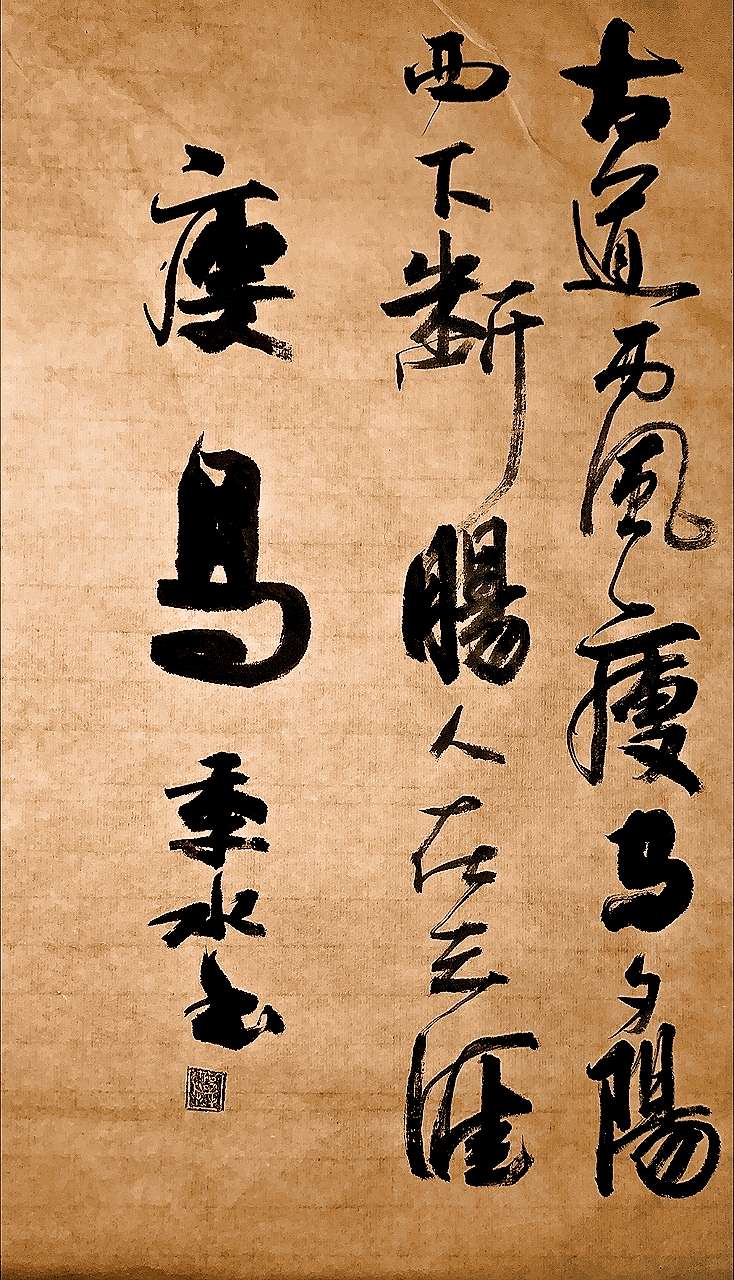 古道西風瘦马夕陽
西下断腸人在天涯
瘦马
水书